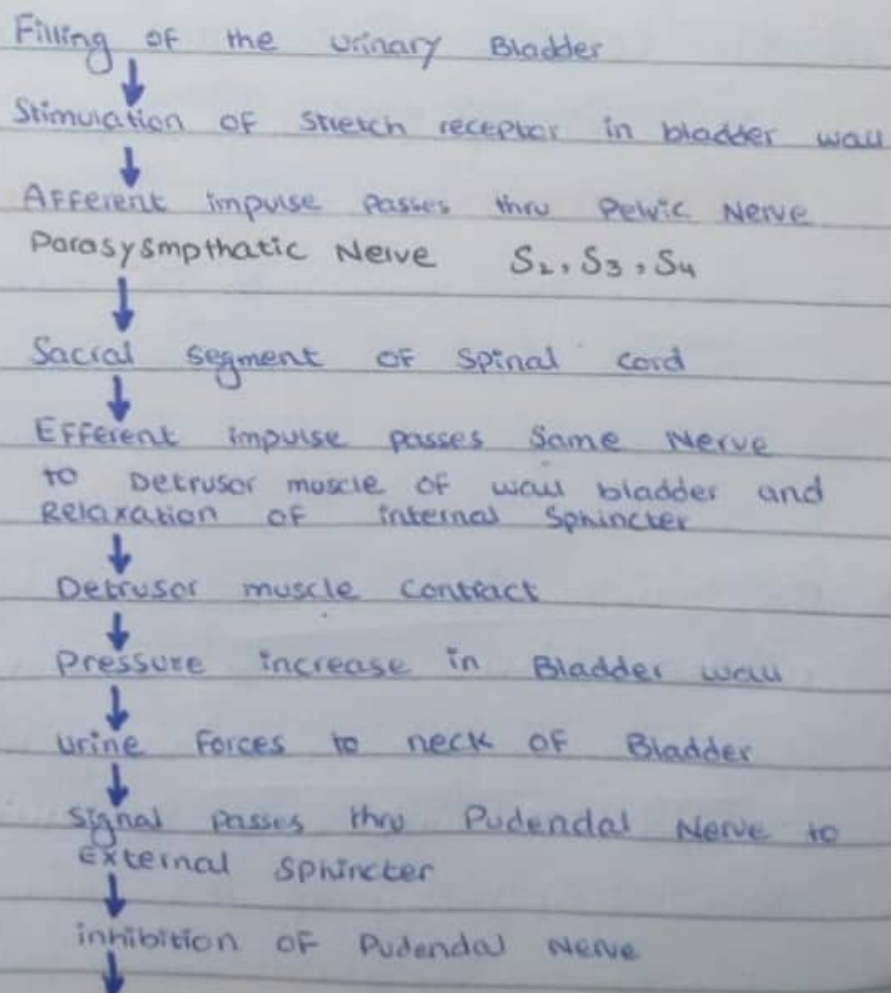 Filling of the urinary Bladder
Stimulation of Stretch receptor in bladder wall
Afferent impulse passes thru Pelvic Nerve
Parasysmpthatic Nerve S₂, S₃, S₄
Sacral segment of spinal cord
Efferent impulse passes Same Nerve
to Detrusor muscle of wall bladder and
Relaxation of internal Sphincter
Detrusor muscle Contract
Pressure increase in Bladder wall
urine Forces to neck of Bladder
Signal passes thru Pudendal Nerve to
External Sphincter
inhibition of Pudendal Nerve